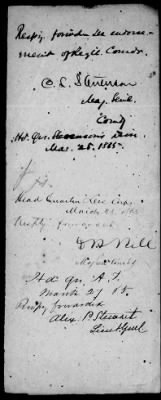 Respy forwd. See endorse-
ment of Regtl Comdr.
C. L. Stevenson
Maj. Genl.
Comdg
Hd. Qrs. Stevenson's Divn
Mar. 25. 1865.
Head Quarters Lee Corps
March 25 1865
Respy forwarded
D H Hill
Maj Genl Comdg
Hd Qrs A. T.
March 27 65
Respy forwarded
Alex. P. Stewart
Lieut Genl